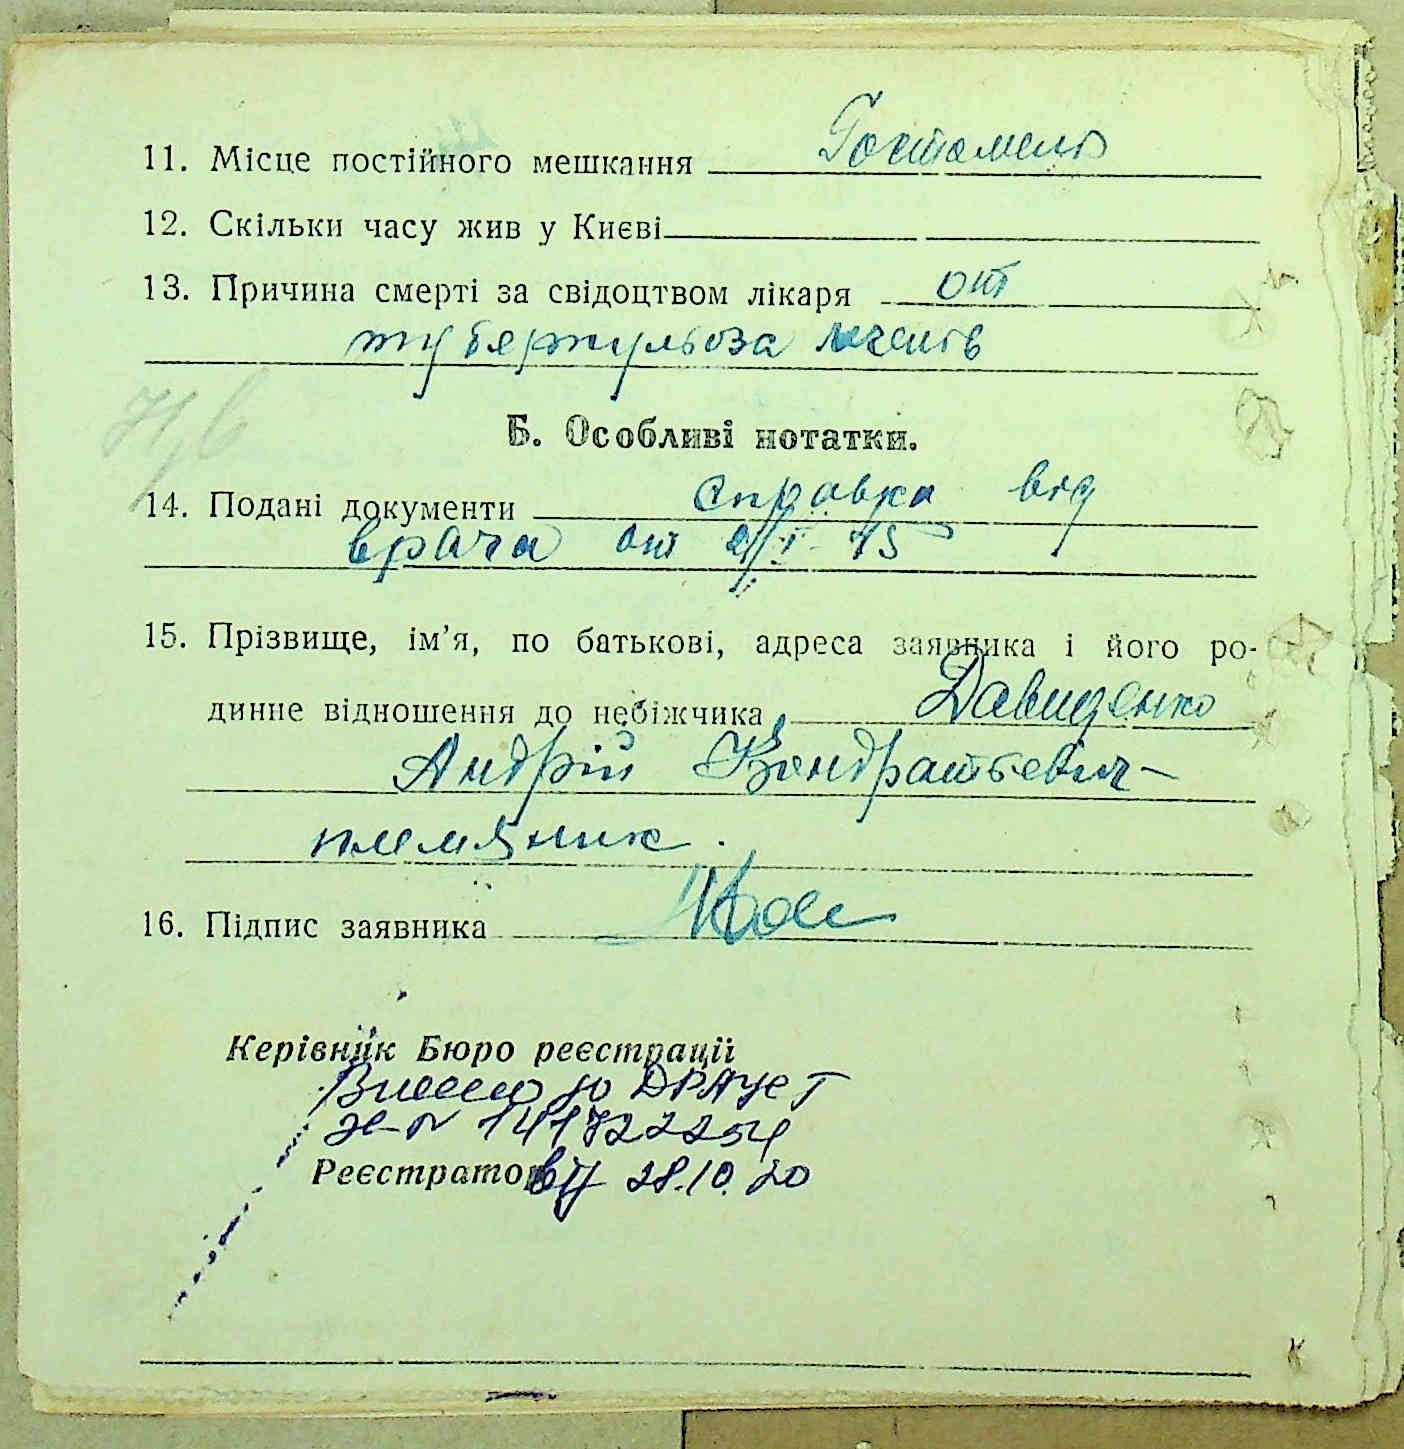 11. Місце постійного мешкання Гостомель
12. Скільки часу жив у Києві
13. Причина смерті за свідоцтвом лікаря от
туберкульоза легенів
Б. Особливі нотатки.
14. Подані документи справка від
врача от
15. Прізвище, ім’я, по батькові, адреса заявника і його ро-
динне відношення до небіжчика Давиденко
Андрій Кондратьевич –
племяник.
16. Підпис заявника
Керівник Бюро реєстрації
Внесено до ДРАЦСГ
141722254
Реєстратор від 28.10.20